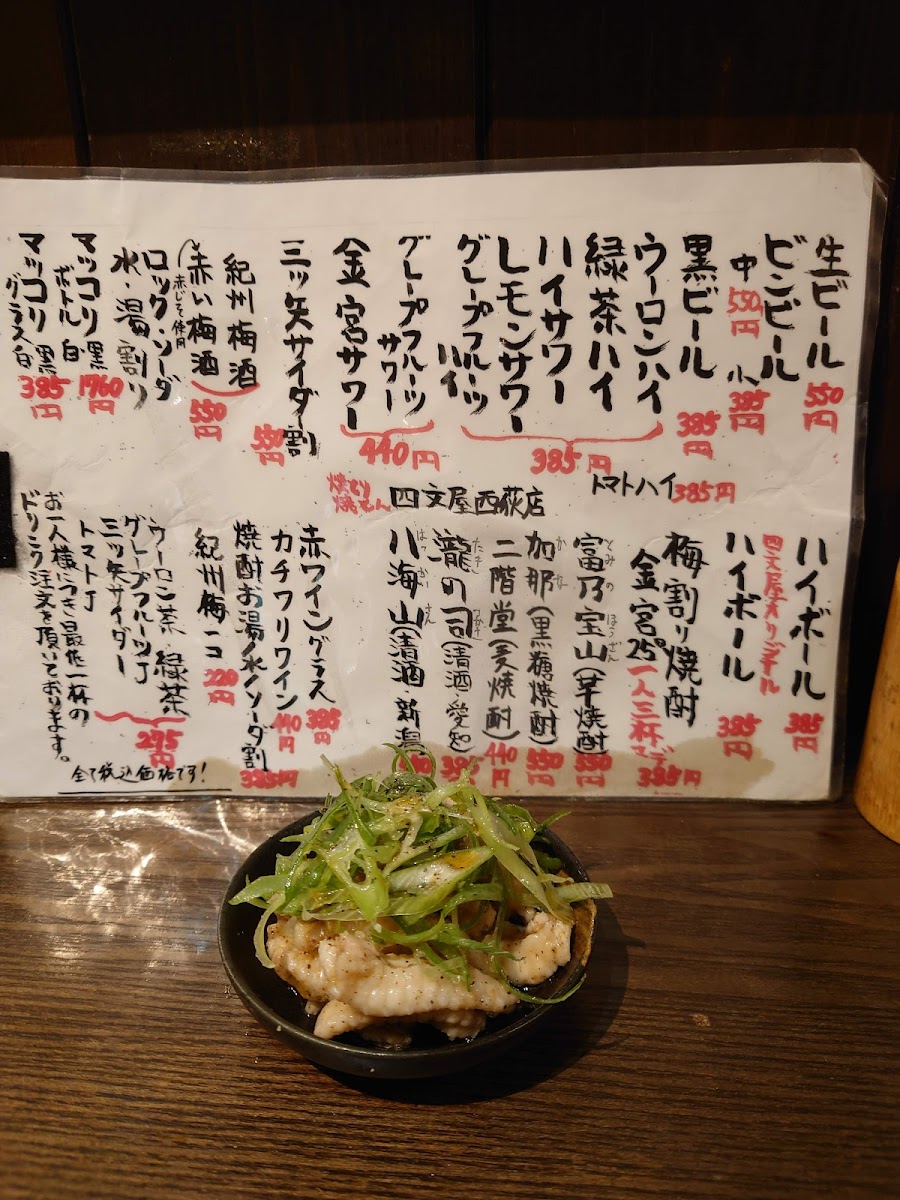 生ビール 550円
ビンビール
中 550円 小 385円
黒ビール 385円
ウーロンハイ
緑茶ハイ
ハイサワー
レモンサワー
グレープフルーツハイ
385円
グレープフルーツサワー
金宮サワー
440円
三ッ矢サイダー割 550円
紀州梅酒
(赤い梅酒)
赤じそ使用
550円
ロック・ソーダ
水・湯割り
マッコリ 黒 白
ボトル 1760円
マッコリ 黒 白
グラス 385円
トマトハイ 385円
焼とり
焼とん
四文屋西荻店
ハイボール 385円
四文屋オリジナル
ハイボール 385円
梅割り焼酎
金宮25° 一人三杯まで
385円
富乃宝山(芋焼酎) 550円
とみのほうざん
加那(黒糖焼酎) 550円
かな
二階堂(麦焼酎) 440円
瀧の司(清酒 愛知)
たきつかさ
八海山(清酒 新潟
はっかいさん
赤ワイングラス 385円
カチワリワイン 440円
焼酎お湯/水/ソーダ割 385円
紀州梅一コ 220円
ウーロン茶 緑茶
グレープフルーツJ
三ッ矢サイダー
トマトJ
275円
お一人様につき最低一杯の
ドリンク注文を頂いております。
全て税込価格です!